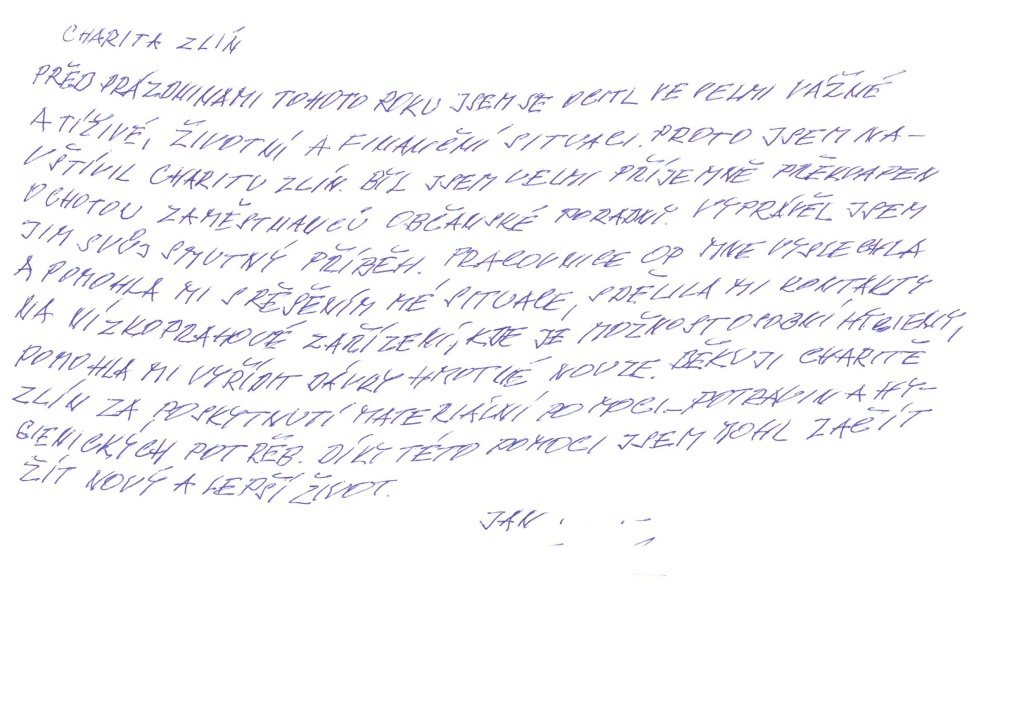 CHARITA ZLÍN
PŘED PRÁZDNINAMI TOHOTO ROKU JSEM SE OCITL VE VELMI VÁŽNÉ
A TÍŽIVÉ, ŽIVOTNÍ A FINANČNÍ SITUACI. PROTO JSEM NA-
VŠTÍVIL CHARITU ZLÍN. BYL JSEM VELMI PŘÍJEMNĚ PŘEKVAPEN
OCHOTOU ZAMĚSTNANCŮ OBČANSKÉ PORADNY. VYPRÁVĚL JSEM
JIM SVŮJ SMUTNÝ PŘÍBĚH. PRACOVNICE OP MNE VYSLECHLA
A POMOHLA MI S ŘEŠENÍM MÉ SITUACE, SDĚLILA MI KONTAKTY
NA NÍZKOPRAHOVÉ ZAŘÍZENÍ, KDE JE MOŽNOST OSOBNÍ HYGIENY,
POMOHLA MI VYŘÍDIT DÁVKY HMOTNÉ NOUZE. DĚKUJI CHARITĚ
ZLÍN ZA POSKYTNUTÍ MATERIÁLNÍ POMOCI - POTRAVIN A HY-
GIENICKÝCH POTŘEB. DÍKY TÉTO POMOCI JSEM MOHL ZAČÍT
ŽÍT NOVÝ A LEPŠÍ ŽIVOT.
JAN